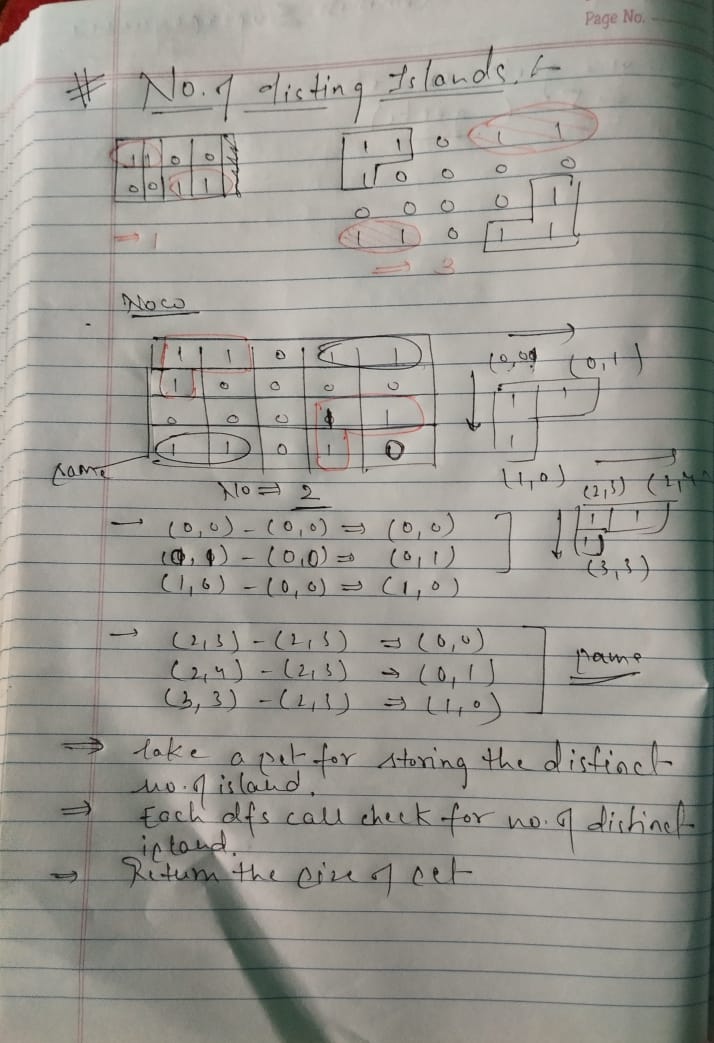 Page No.
# No. of disting Islands. :-
1 1 0 0
0 0 1 1
⇒ 1
1 1 0 1 1
1 0 0 0 0
0 0 0 0 1
1 1 0 1 1
⇒ 3
Noco
1 1 0 1 1
1 0 0 0 0
0 0 0 1 1
1 1 0 1 0
same
No ⇒ 2
(0,0) (0,1)
1 1
1
(1,0)
(2,3) (2,4)
1 1
1
(3,3)
→ (0,0) - (0,0) ⇒ (0,0)
(0,1) - (0,0) ⇒ (0,1)
(1,0) - (0,0) ⇒ (1,0)
→ (2,3) - (2,3) ⇒ (0,0)
(2,4) - (2,3) → (0,1)
(3,3) - (2,3) ⇒ (1,0)
same
⇒ take a set for storing the distinct
no. of island.
⇒ Each dfs call check for no. of distinct
island.
⇒ Return the size of set